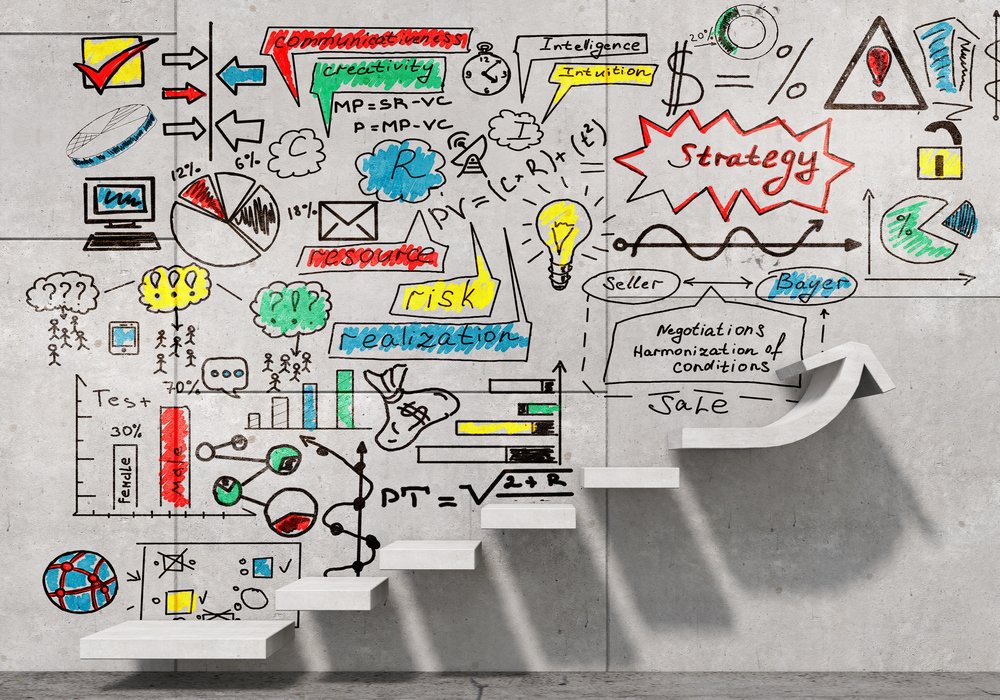 communicativeness
creativity
MP=SR-VC
P=MP-VC
12
Intelligence
Intuition
20%
$ = %
!
C
R
I
PV=(C+R)×(t²)
=
Strategy
6%
12%
18%
resource
risk
realization
%
Seller
Bayer
Negotiations
Harmonization of
conditions
Sale
???
!!!
?!?
70%
Test
30%
Female
Male
$
PT=√2+R